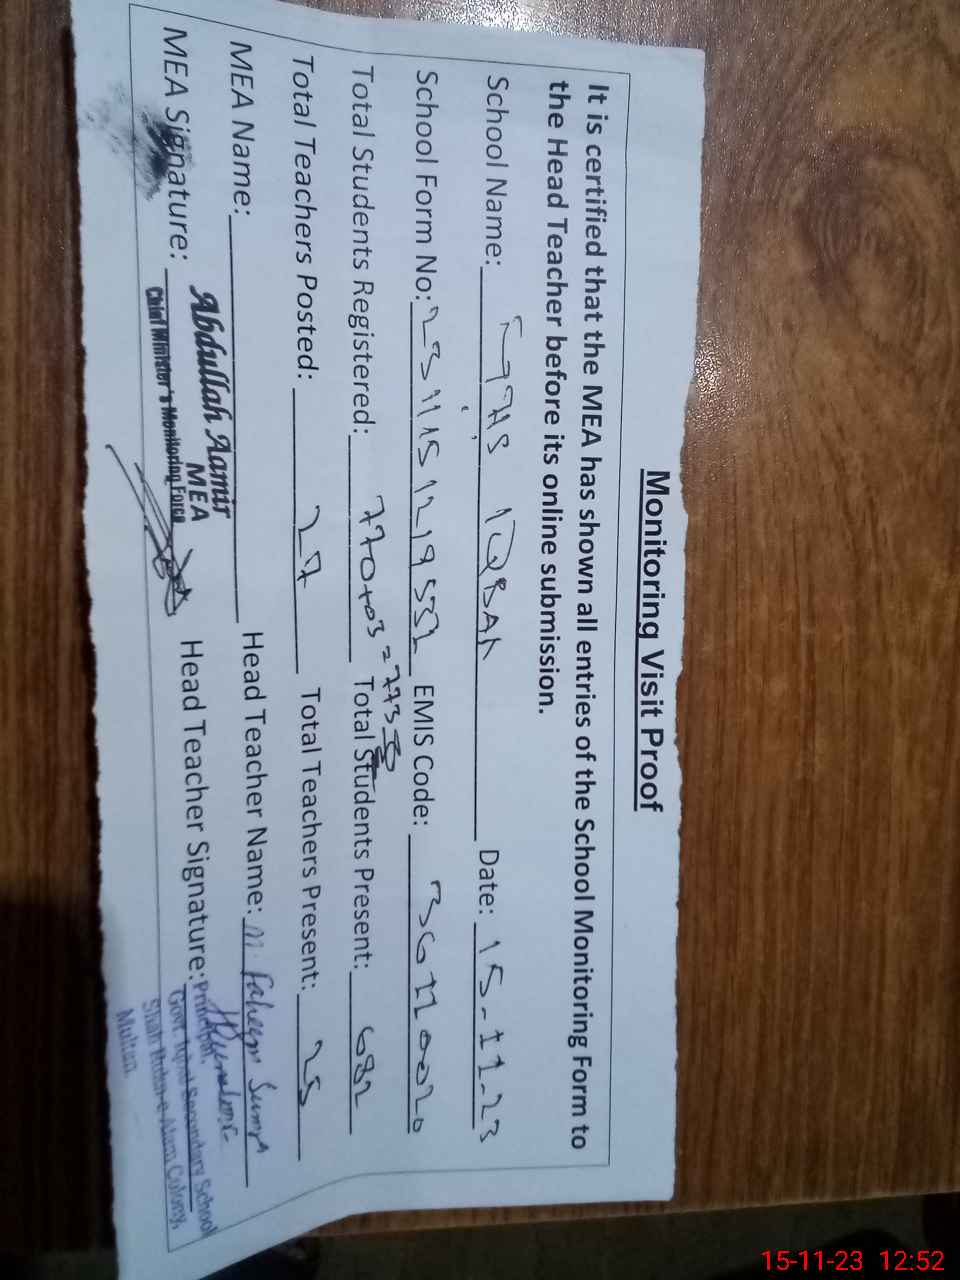 Monitoring Visit Proof
It is certified that the MEA has shown all entries of the School Monitoring Form to
the Head Teacher before its online submission.
School Name: GGHS IQBAL Date: 15-11-23
School Form No: EMIS Code:
Total Students Registered: 770+03=773 Total Students Present: 682
Total Teachers Posted: 27 Total Teachers Present: 25
MEA Name: Head Teacher Name: M. Faheem
Abdullah Aamir
MEA
MEA Signature: Head Teacher Signature:
Chief Minister's Monitoring Force
Principal.
Govt. Secondary School
Shah Rukn-e-Alam Colony,
Multan.
15-11-23 12:52